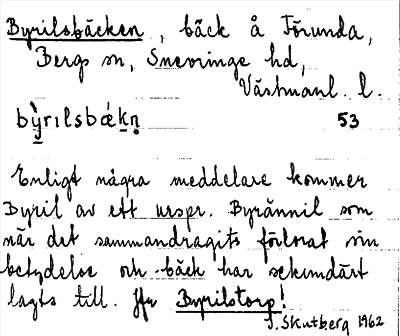 Byrilsbäcken, bäck å Forunda,
Bergs sn, Snevringe hd,
Västmanl. l.
bỳrilsbǽkn̥ 53
Enligt några meddelare kommer
Byril av ett urspr. Byrännil som
när det sammandragits förlorat sin
betydelse och bäck har sekundärt
lagts till. Jfr Byrilstorp!
J. Skutberg 1962